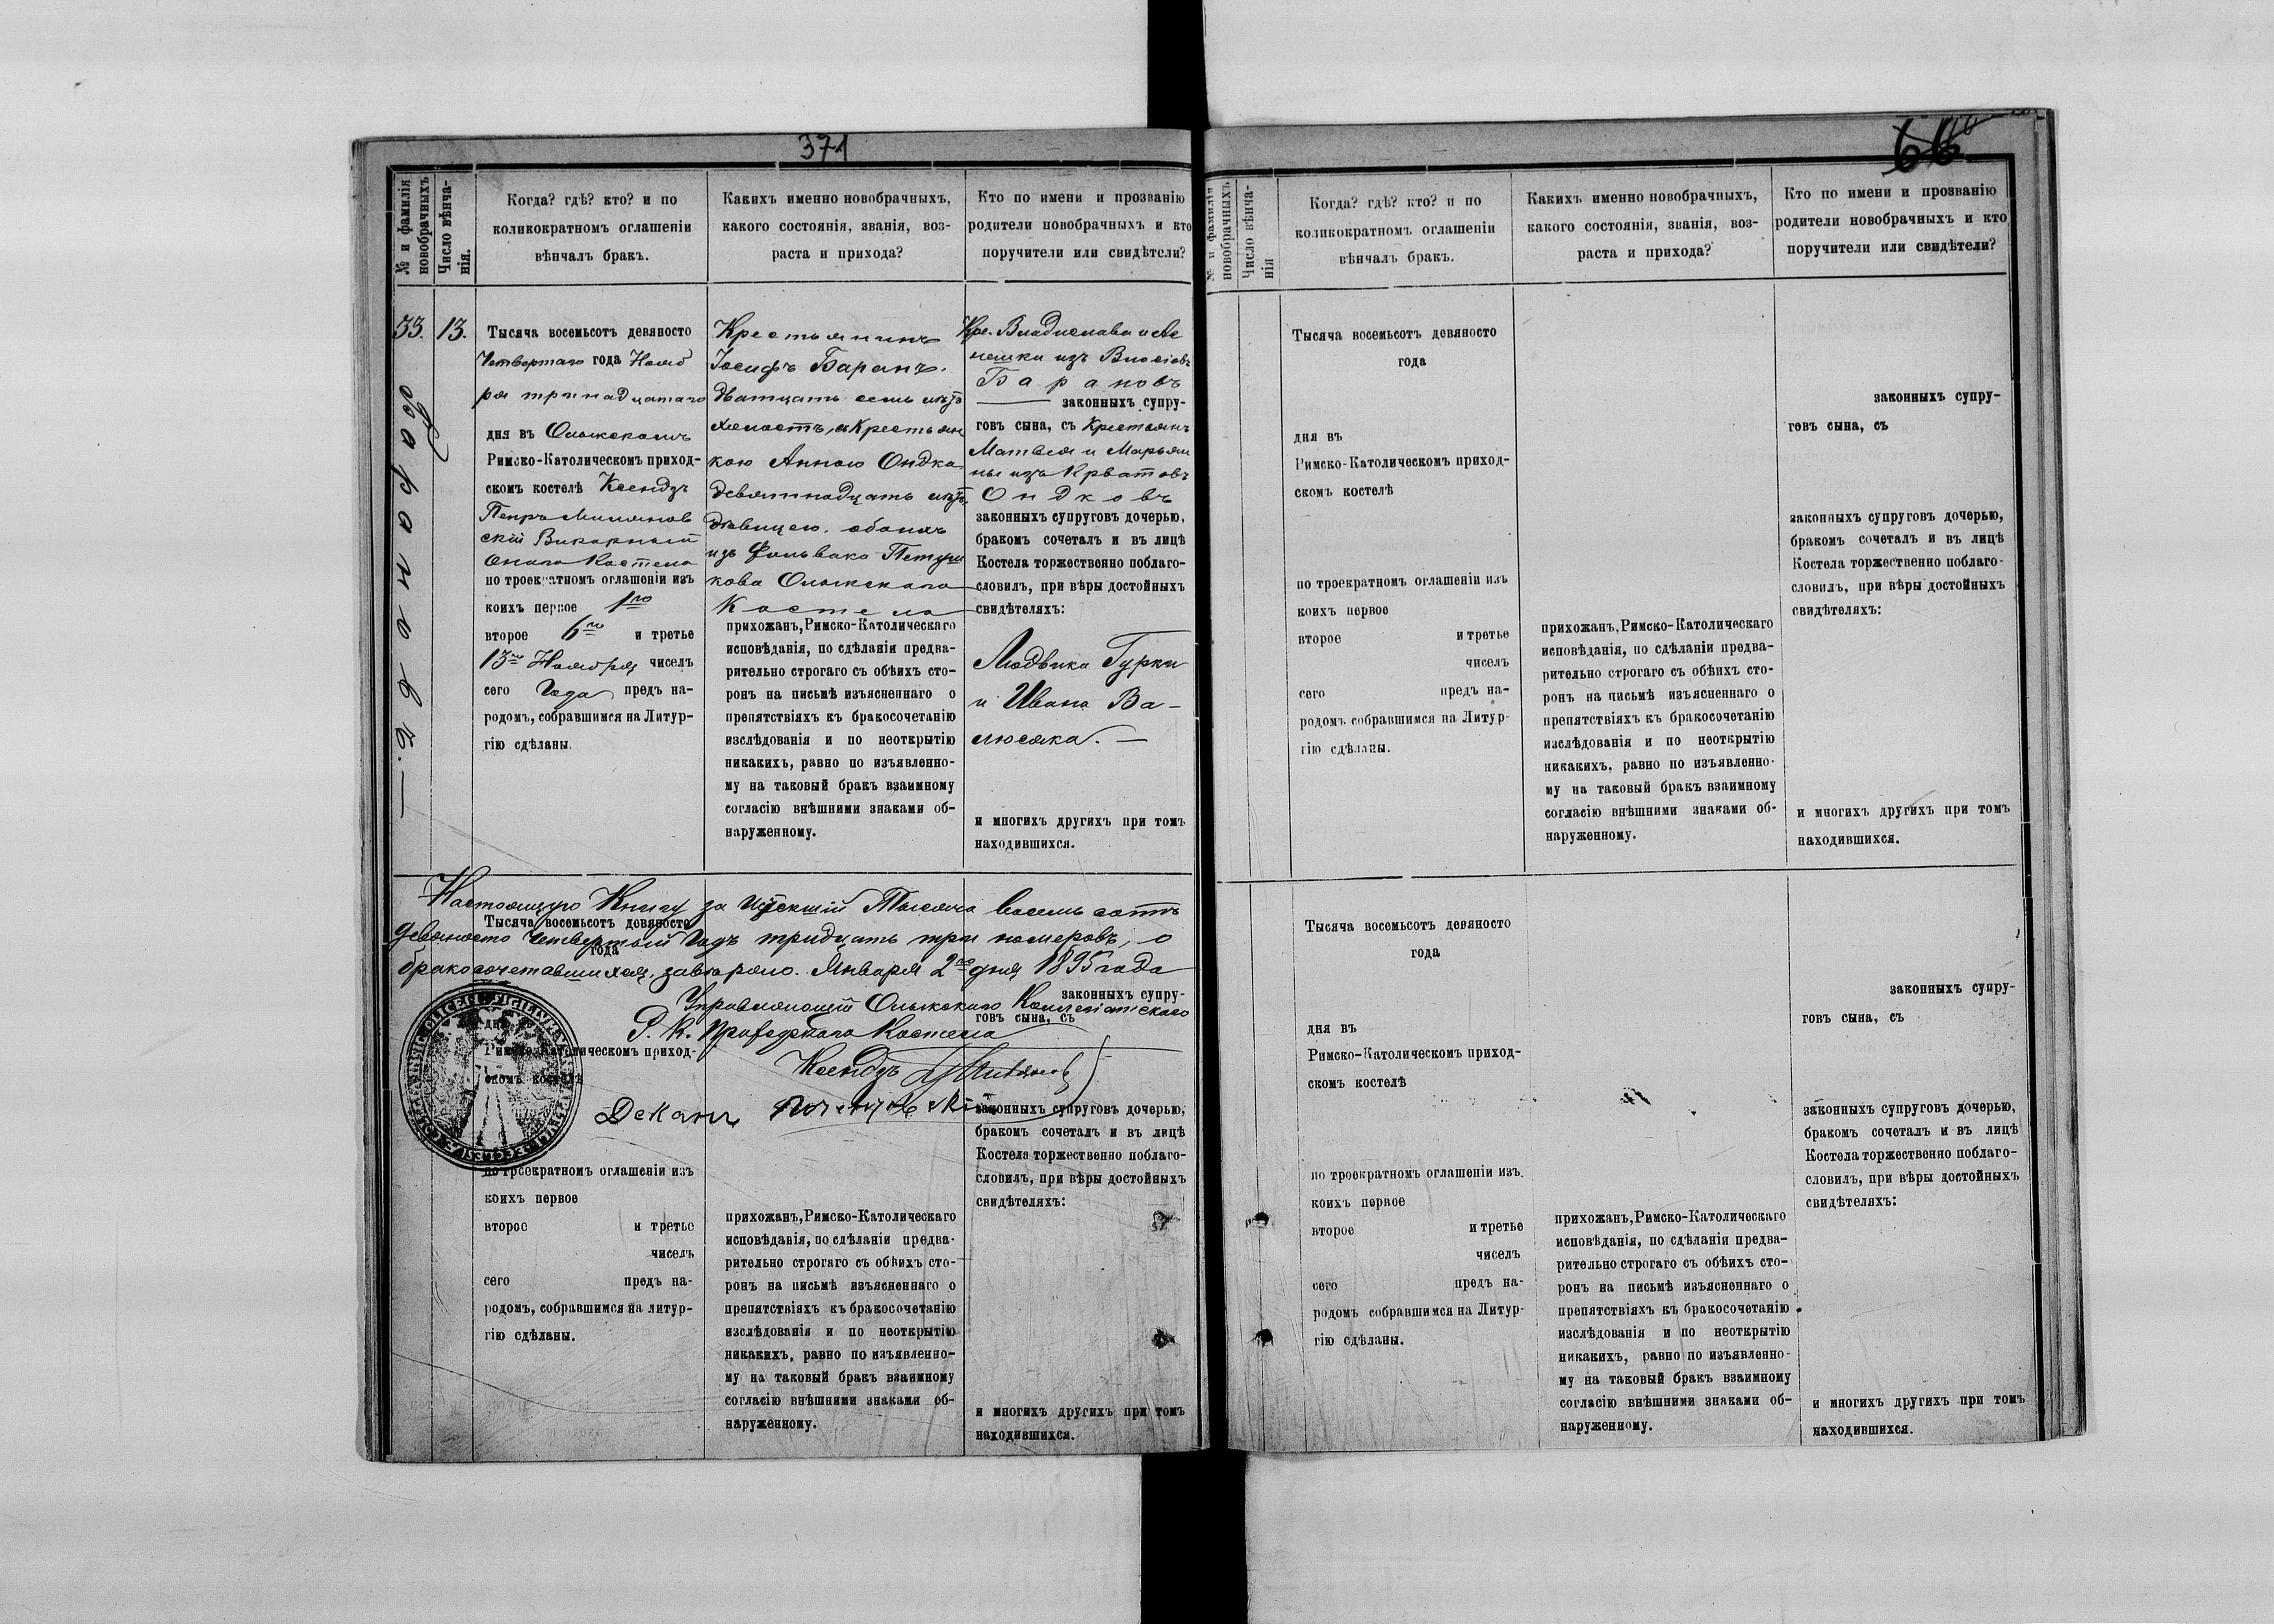 371
№ и фамилія
новобрачныхъ
Число вѣнча-
нія.
Когда? гдѣ? кто? и по
коликократномъ оглашеніи
вѣнчалъ бракъ.
Какихъ именно новобрачныхъ,
какого состоянія, званія, воз-
раста и прихода?
Кто по имени и прозванію
родители новобрачныхъ и кто
поручители или свидѣтели?
33.
13.
Барановъ. —
Тысяча восемьсотъ девяносто
Четвертаго года Нояб
ря тринадцатаго
дня въ Олыкскомъ
Римско-Католическомъ приход-
скомъ костелѣ Ксендзъ
Петръ
скій Викарный
онаго Костела
по троекратномъ оглашеніи изъ
коихъ первое 1го
второе 6го и третье
13го Ноября чиселъ
сего Года предъ на-
родомъ, собравшимся на Литур-
гію сдѣланы.
Крестьянинъ
Іосифъ Баранъ.
двадцать семь лѣтъ
холостъ, съ Крестьян
кою Анною Ондка
девятнадцать лѣтъ,
дѣвицею, обоихъ
изъ Фольварка
кова Олыкскаго
Костела
прихожанъ, Римско-Католическаго
исповѣданія, по сдѣланіи предва-
рительно строгаго съ обѣихъ сто-
ронъ на письмѣ изъясненнаго о
препятствіяхъ къ бракосочетанію
изслѣдованія и по неоткрытію
никакихъ, равно по изъявленно-
му на таковый бракъ взаимному
согласію внѣшними знаками об-
наруженному.
Кре. Владислава и Аг
нешки изъ
Барановъ
законныхъ супру-
говъ сына, съ Крестьянъ
Матвѣя и Марьян
ны изъ
Ондковъ
законныхъ супруговъ дочерью,
бракомъ сочеталъ и въ лицѣ
Костела торжественно поблаго-
словилъ, при вѣры достойныхъ
свидѣтеляхъ:
Людвика Гурки
и Ивана Ва-
люсяка. —
и многихъ другихъ при томъ
находившихся.
Настоящую Книгу за Истекшій Тысяча восемьсотъ
Тысяча восемьсотъ девяносто
девяносто Четвертый Годъ тридцать три номеровъ, о
года
бракосочетавшихся, Января 2го дня 1895 года
законныхъ супру-
Управляющій Олыкскаго Коллегіатскаго
говъ сына, съ
Р. К. Костела
Римско-Католическомъ приход-
скомъ костелѣ
Ксендзъ
Деканъ
законныхъ супруговъ дочерью,
бракомъ сочеталъ и въ лицѣ
Костела торжественно поблаго-
словилъ, при вѣры достойныхъ
свидѣтеляхъ:
по троекратномъ оглашеніи изъ
коихъ первое
второе и третье
чиселъ
сего предъ на-
родомъ, собравшимся на литур-
гію сдѣланы.
прихожанъ, Римско-Католическаго
исповѣданія, по сдѣланіи предва-
рительно строгаго съ обѣихъ сто-
ронъ на письмѣ изъясненнаго о
препятствіяхъ къ бракосочетанію
изслѣдованія и по неоткрытію
никакихъ, равно по изъявленно-
му на таковый бракъ взаимному
согласію внѣшними знаками об-
наруженному.
и многихъ другихъ при томъ
находившихся.
66
№ и фамилія
новобрачныхъ
Число вѣнча-
нія
Когда? гдѣ? кто? и по
коликократномъ оглашеніи
вѣнчалъ бракъ.
Какихъ именно новобрачныхъ,
какого состоянія, званія, воз-
раста и прихода?
Кто по имени и прозванію
родители новобрачныхъ и кто
поручители или свидѣтели?
Тысяча восемьсотъ девяносто
года
дня въ
Римско-Католическомъ приход-
скомъ костелѣ
по троекратномъ оглашеніи изъ
коихъ первое
второе и третье
чиселъ
сего предъ на-
родомъ собравшимся на Литур-
гію сдѣланы.
прихожанъ, Римско-Католическаго
исповѣданія, по сдѣланіи предва-
рительно строгаго съ обѣихъ сто-
ронъ на письмѣ изъясненнаго о
препятствіяхъ къ бракосочетанію
изслѣдованія и по неоткрытію
никакихъ, равно по изъявленно-
му на таковый бракъ взаимному
согласію внѣшними знаками об-
наруженному.
законныхъ супру-
говъ сына, съ
законныхъ супруговъ дочерью,
бракомъ сочеталъ и въ лицѣ
Костела торжественно поблаго-
словилъ, при вѣры достойныхъ
свидѣтеляхъ:
и многихъ другихъ при томъ
находившихся.
Тысяча восемьсотъ девяносто
года
дня въ
Римско-Католическомъ приход-
скомъ костелѣ
по троекратномъ оглашеніи изъ.
коихъ первое
второе и третье
чиселъ
сего предъ на-
родомъ собравшимся на Литур-
гію сдѣланы.
прихожанъ, Римско-Католическаго
исповѣданія, по сдѣланіи предва-
рительно строгаго съ обѣихъ сто-
ронъ на письмѣ изъясненнаго о
препятствіяхъ къ бракосочетанію
изслѣдованія и по неоткрытію
никакихъ, равно по изъявленно-
му на таковый бракъ взаимному
согласію внѣшними знаками об-
наруженному.
законныхъ супру-
говъ сына, съ
законныхъ супруговъ дочерью,
бракомъ сочеталъ и въ лицѣ
Костела торжественно поблаго-
словилъ, при вѣры достойныхъ
свидѣтеляхъ:
и многихъ другихъ при томъ
находившихся.